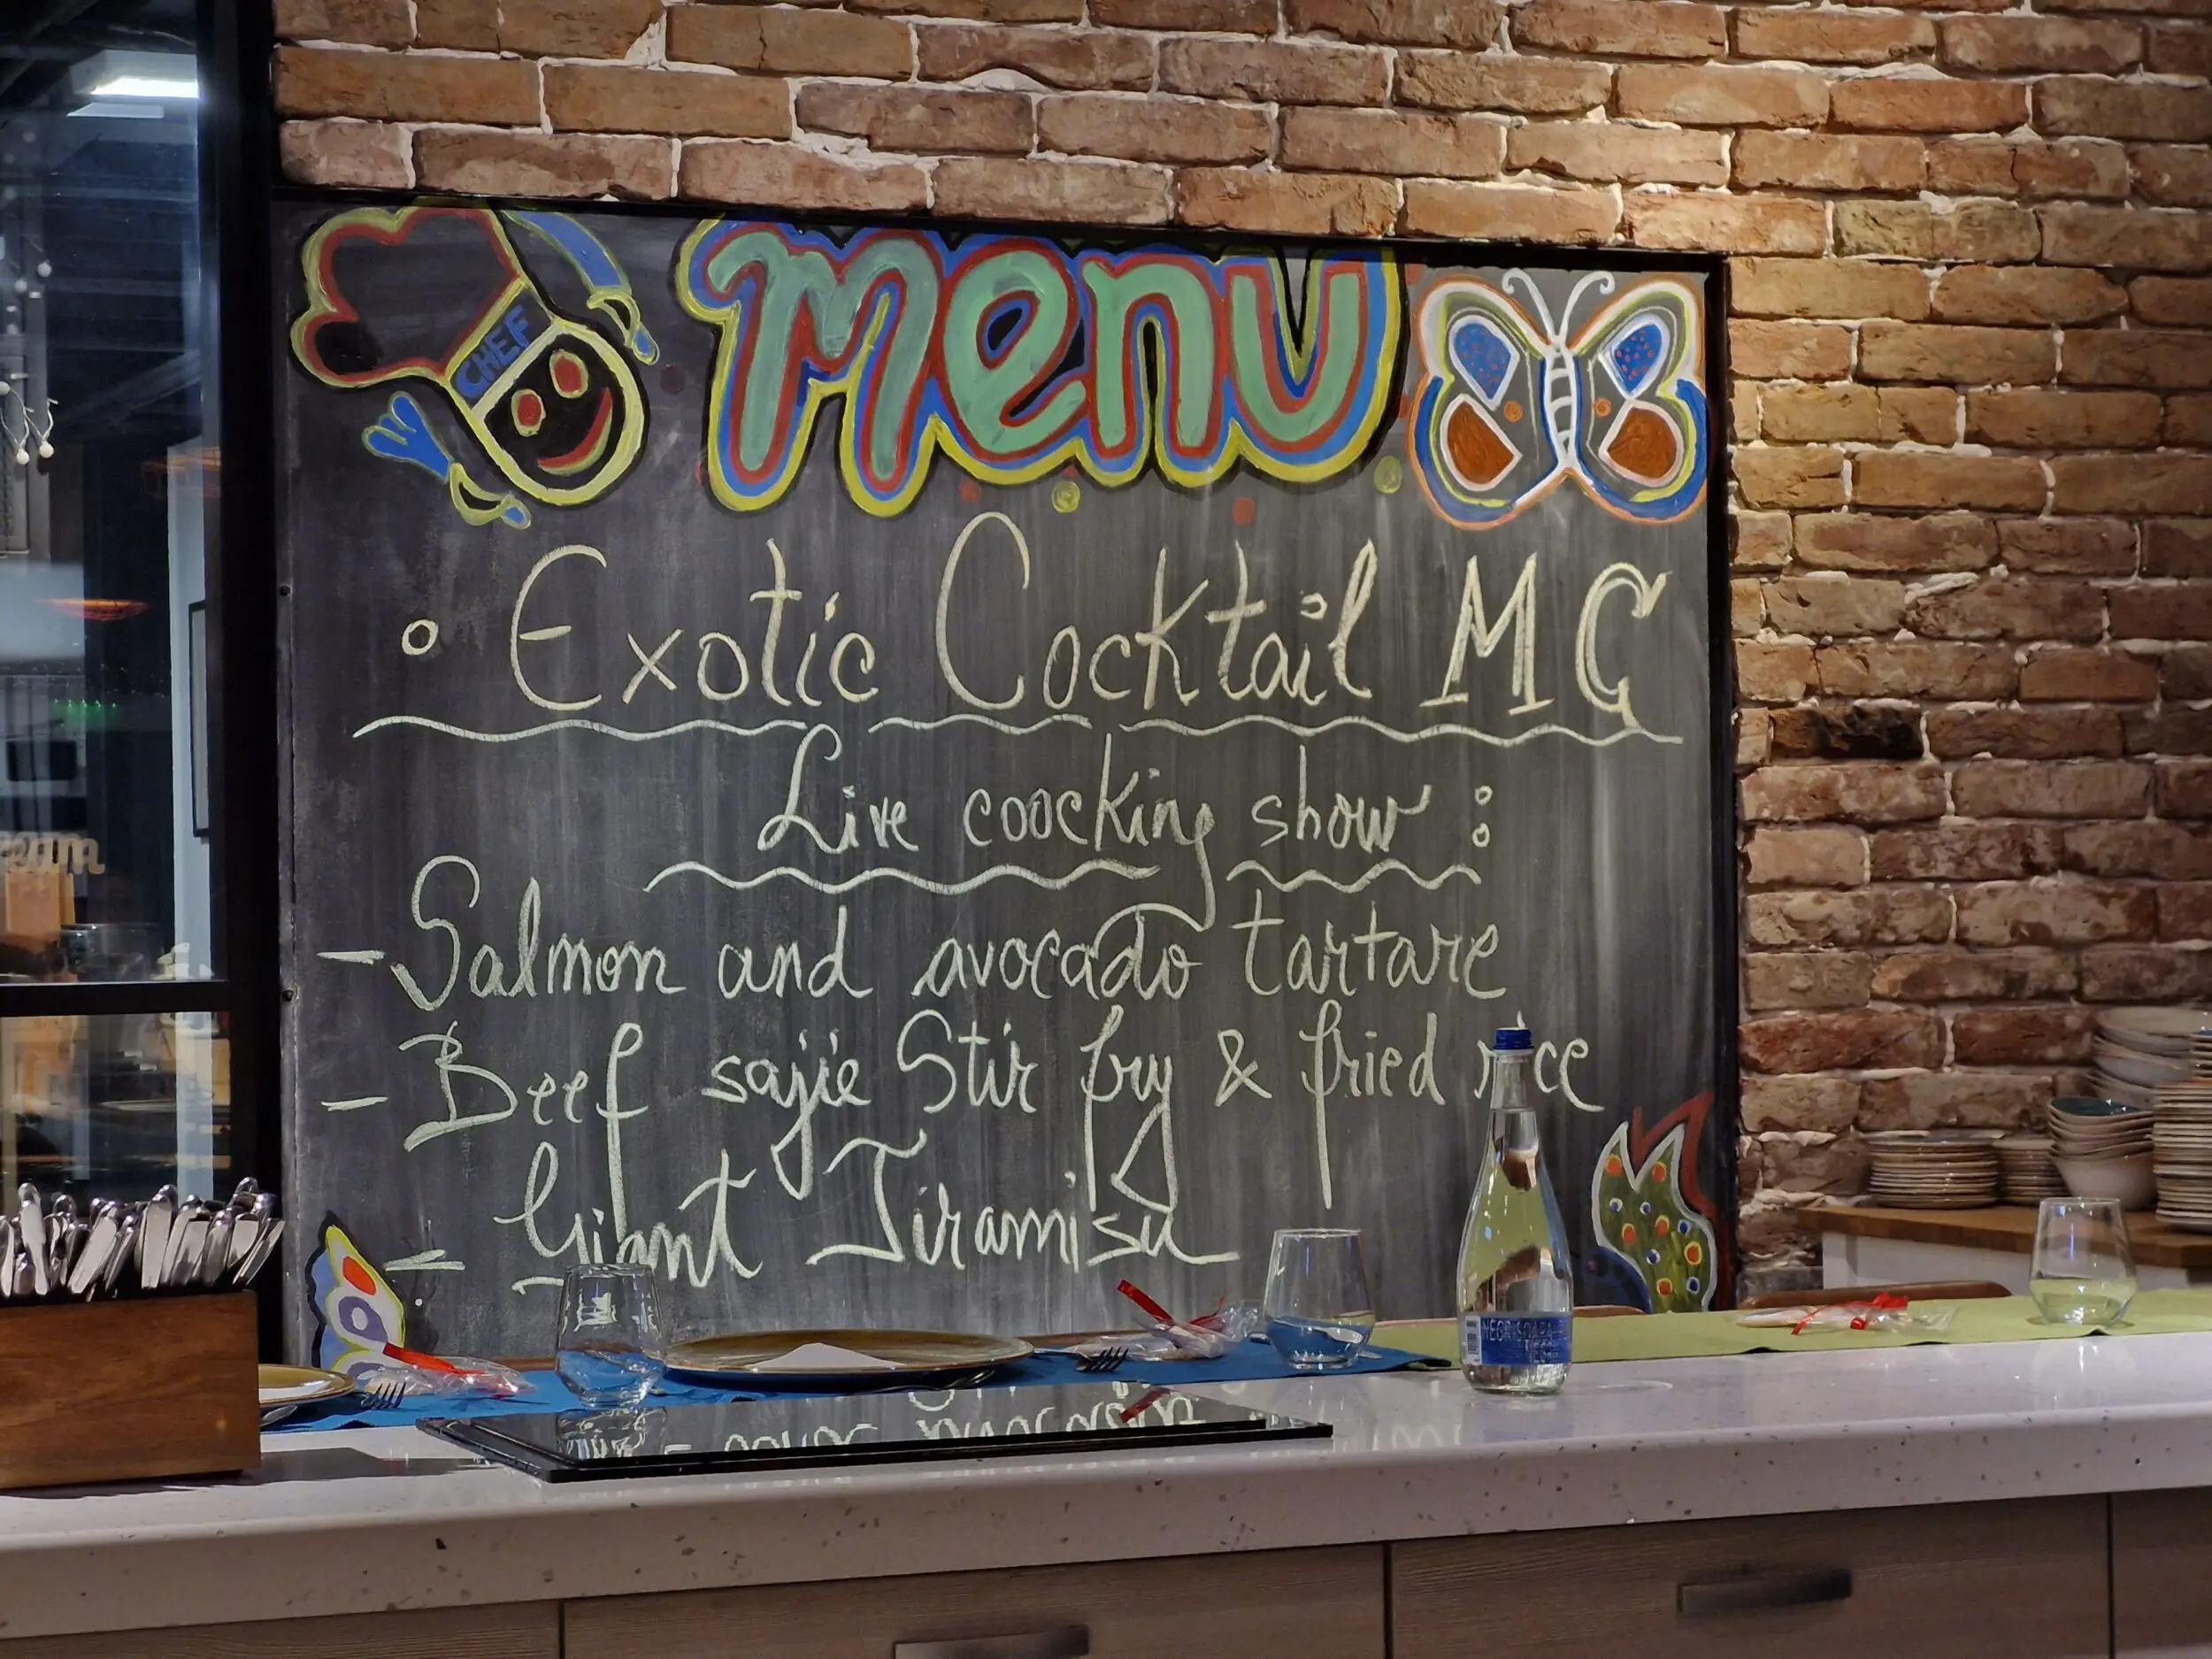 CHEF
menu
Exotic Cocktail MC
Live coocking show :
- Salmon and avocado tartare
- Beef sajie Stir fry & fried rice
- Giant Tiramisu